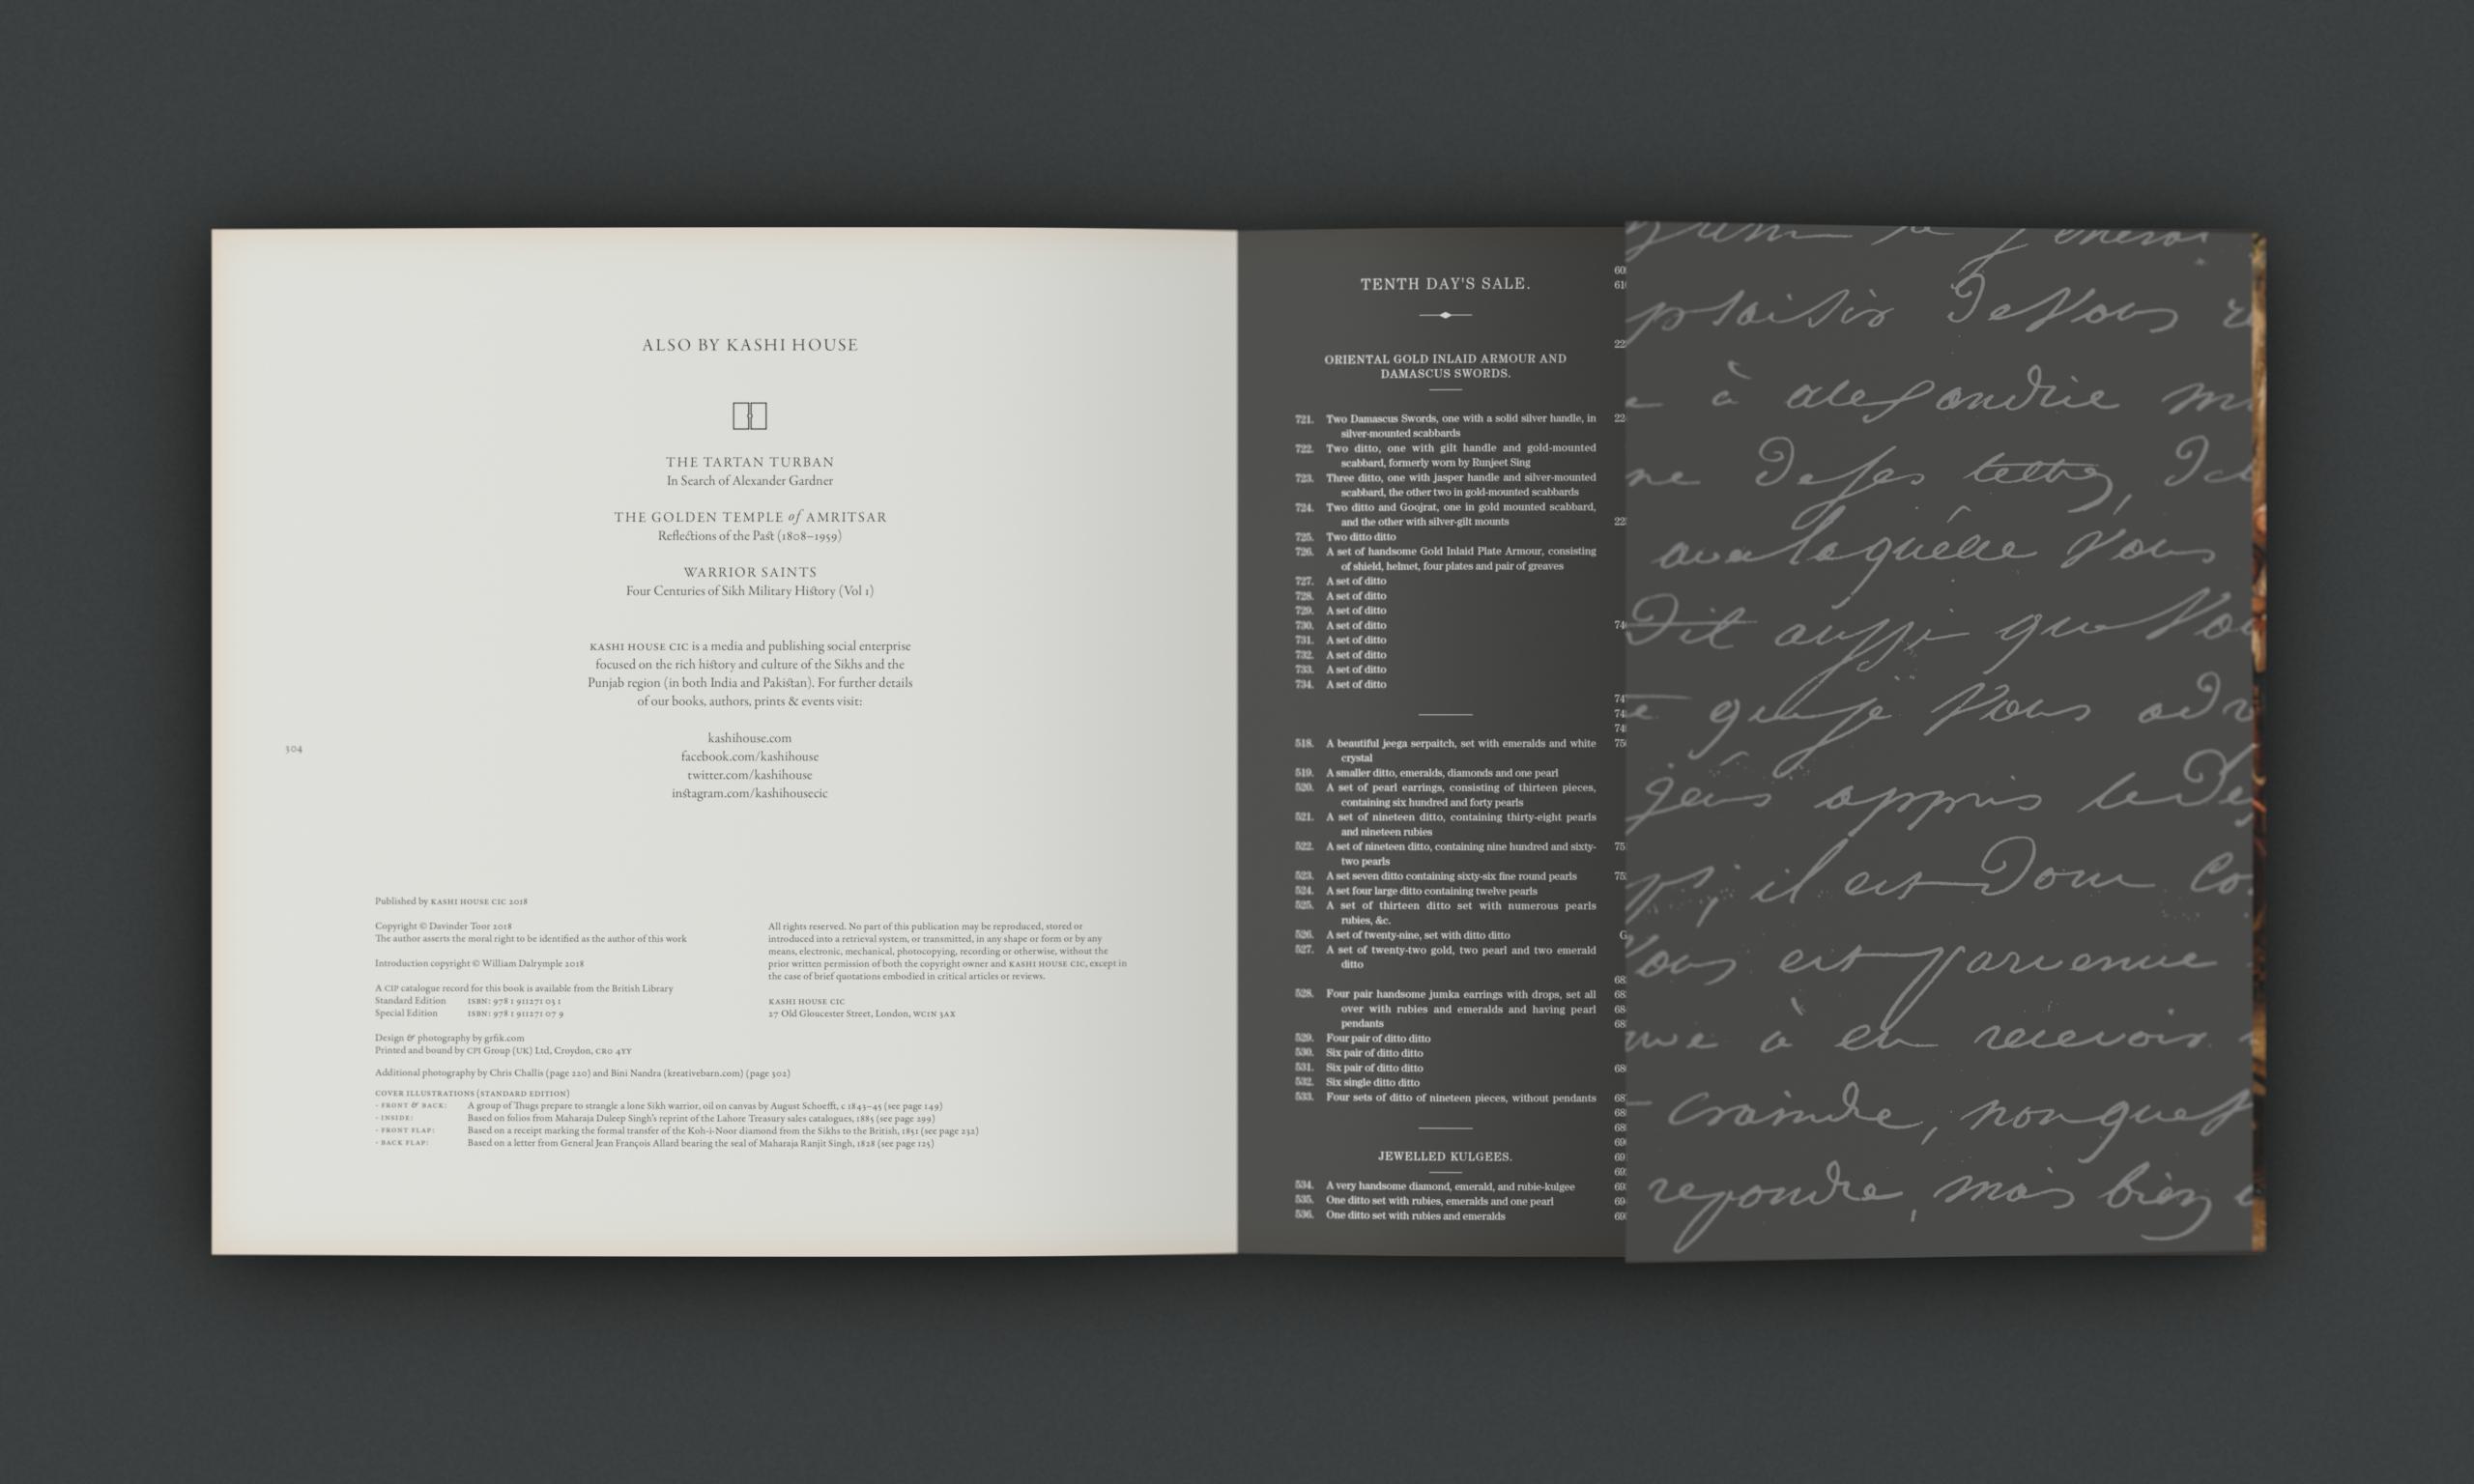 ALSO BY KASHI HOUSE
THE TARTAN TURBAN
In Search of Alexander Gardner
THE GOLDEN TEMPLE of AMRITSAR
Reflections of the Past (1808–1959)
WARRIOR SAINTS
Four Centuries of Sikh Military History (Vol 1)
KASHI HOUSE CIC is a media and publishing social enterprise
focused on the rich history and culture of the Sikhs and the
Punjab region (in both India and Pakistan). For further details
of our books, authors, prints & events visit:
kashihouse.com
facebook.com/kashihouse
twitter.com/kashihouse
instagram.com/kashihousecic
304
Published by KASHI HOUSE CIC 2018
Copyright © Davinder Toor 2018
The author asserts the moral right to be identified as the author of this work
Introduction copyright © William Dalrymple 2018
A CIP catalogue record for this book is available from the British Library
Standard Edition ISBN: 978 1 911271 03 1
Special Edition ISBN: 978 1 911271 07 9
Design & photography by grfik.com
Printed and bound by CPI Group (UK) Ltd, Croydon, CR0 4YY
All rights reserved. No part of this publication may be reproduced, stored or
introduced into a retrieval system, or transmitted, in any shape or form or by any
means, electronic, mechanical, photocopying, recording or otherwise, without the
prior written permission of both the copyright owner and KASHI HOUSE CIC, except in
the case of brief quotations embodied in critical articles or reviews.
KASHI HOUSE CIC
27 Old Gloucester Street, London, WC1N 3AX
Additional photography by Chris Challis (page 220) and Bini Nandra (kreativebarn.com) (page 302)
COVER ILLUSTRATIONS (STANDARD EDITION)
- FRONT & BACK: A group of Thugs prepare to strangle a lone Sikh warrior, oil on canvas by August Schoefft, c 1843–45 (see page 149)
- INSIDE: Based on folios from Maharaja Duleep Singh's reprint of the Lahore Treasury sales catalogues, 1885 (see page 299)
- FRONT FLAP: Based on a receipt marking the formal transfer of the Koh-i-Noor diamond from the Sikhs to the British, 1851 (see page 232)
- BACK FLAP: Based on a letter from General Jean François Allard bearing the seal of Maharaja Ranjit Singh, 1828 (see page 125)
TENTH DAY'S SALE.
ORIENTAL GOLD INLAID ARMOUR AND
DAMASCUS SWORDS.
721. Two Damascus Swords, one with a solid silver handle, in
silver-mounted scabbards
722. Two ditto, one with gilt handle and gold-mounted
scabbard, formerly worn by Runjeet Sing
723. Three ditto, one with jasper handle and silver-mounted
scabbard, the other two in gold-mounted scabbards
724. Two ditto and Goojrat, one in gold mounted scabbard,
and the other with silver-gilt mounts
725. Two ditto ditto
726. A set of handsome Gold Inlaid Plate Armour, consisting
of shield, helmet, four plates and pair of greaves
727. A set of ditto
728. A set of ditto
729. A set of ditto
730. A set of ditto
731. A set of ditto
732. A set of ditto
733. A set of ditto
734. A set of ditto
518. A beautiful jeega serpaitch, set with emeralds and white
crystal
519. A smaller ditto, emeralds, diamonds and one pearl
520. A set of pearl earrings, consisting of thirteen pieces,
containing six hundred and forty pearls
521. A set of nineteen ditto, containing thirty-eight pearls
and nineteen rubies
522. A set of nineteen ditto, containing nine hundred and sixty-
two pearls
523. A set seven ditto containing sixty-six fine round pearls
524. A set four large ditto containing twelve pearls
525. A set of thirteen ditto set with numerous pearls
rubies, &c.
526. A set of twenty-nine, set with ditto ditto
527. A set of twenty-two gold, two pearl and two emerald
ditto
528. Four pair handsome jumka earrings with drops, set all
over with rubies and emeralds and having pearl
pendants
529. Four pair of ditto ditto
530. Six pair of ditto ditto
531. Six pair of ditto ditto
532. Six single ditto ditto
533. Four sets of ditto of nineteen pieces, without pendants
JEWELLED KULGEES.
534. A very handsome diamond, emerald, and rubie-kulgee
535. One ditto set with rubies, emeralds and one pearl
536. One ditto set with rubies and emeralds
plaisir De Vous
à alexandrie
De ses
laquelle Vous
Dit aussi que Vou
que je Vous
appris
il est Donc
Vous est parvenue
à en recevoir
craindre, non que
repondre, mais bien